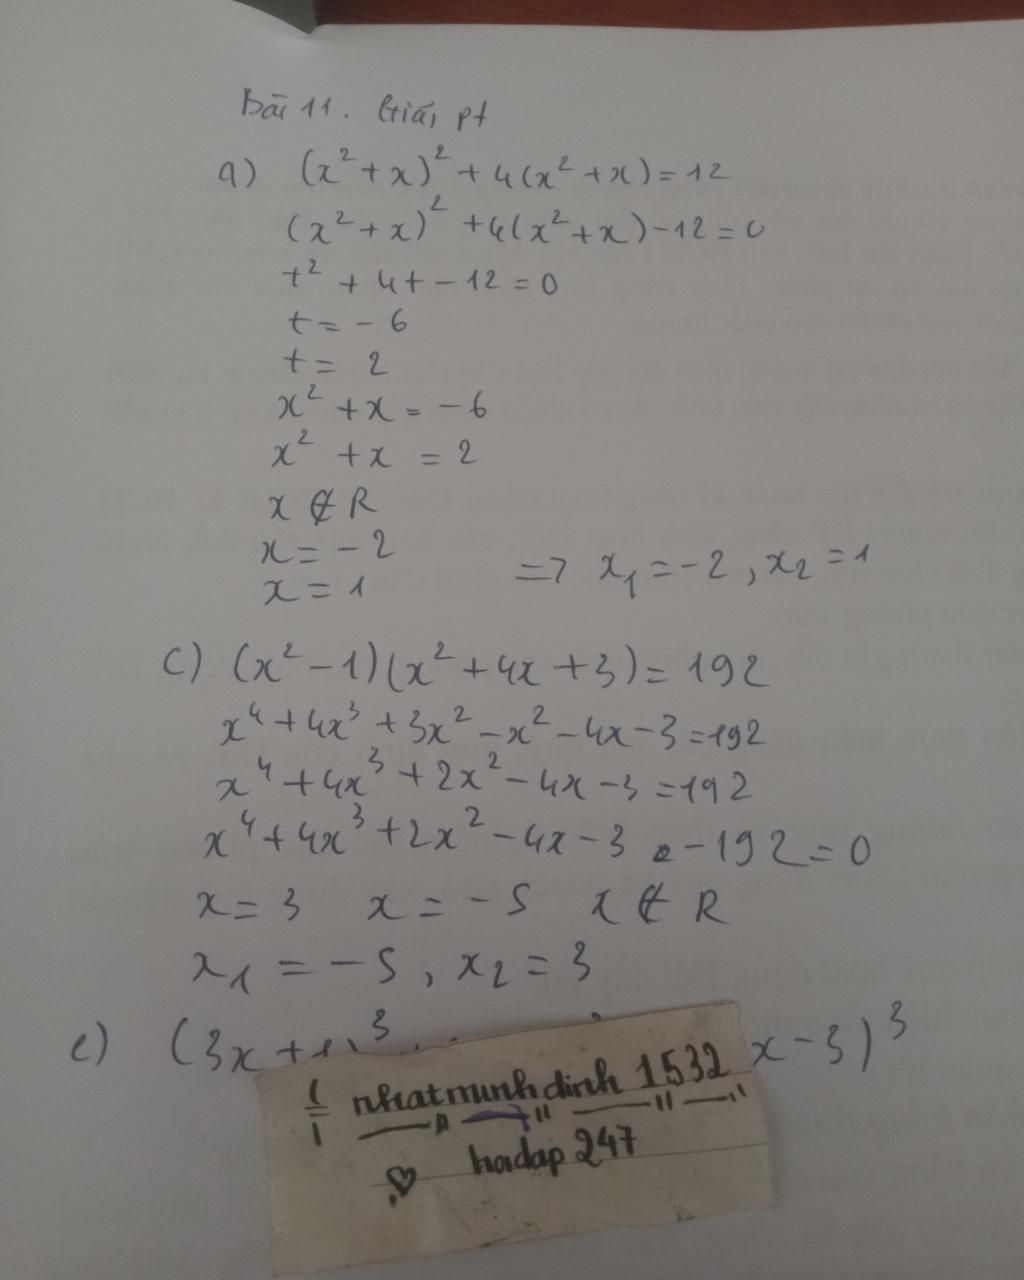 Bài 11. Giải pt
a) (x² + x)² + 4(x² + x) = 12
(x² + x)² + 4(x² + x) - 12 = 0
t² + 4t - 12 = 0
t = - 6
t = 2
x² + x = -6
x² + x = 2
x ∉ R
x = - 2
x = 1 => x₁ = -2, x₂ = 1
c) (x² - 1)(x² + 4x + 3) = 192
x⁴ + 4x³ + 3x² - x² - 4x - 3 = 192
x⁴ + 4x³ + 2x² - 4x - 3 = 192
x⁴ + 4x³ + 2x² - 4x - 3 - 192 = 0
x = 3 x = - 5 x ∉ R
x₁ = - 5, x₂ = 3
e) (3x + 1)³ x - 3)³
nhatminhdinh 1532
hoidap 247